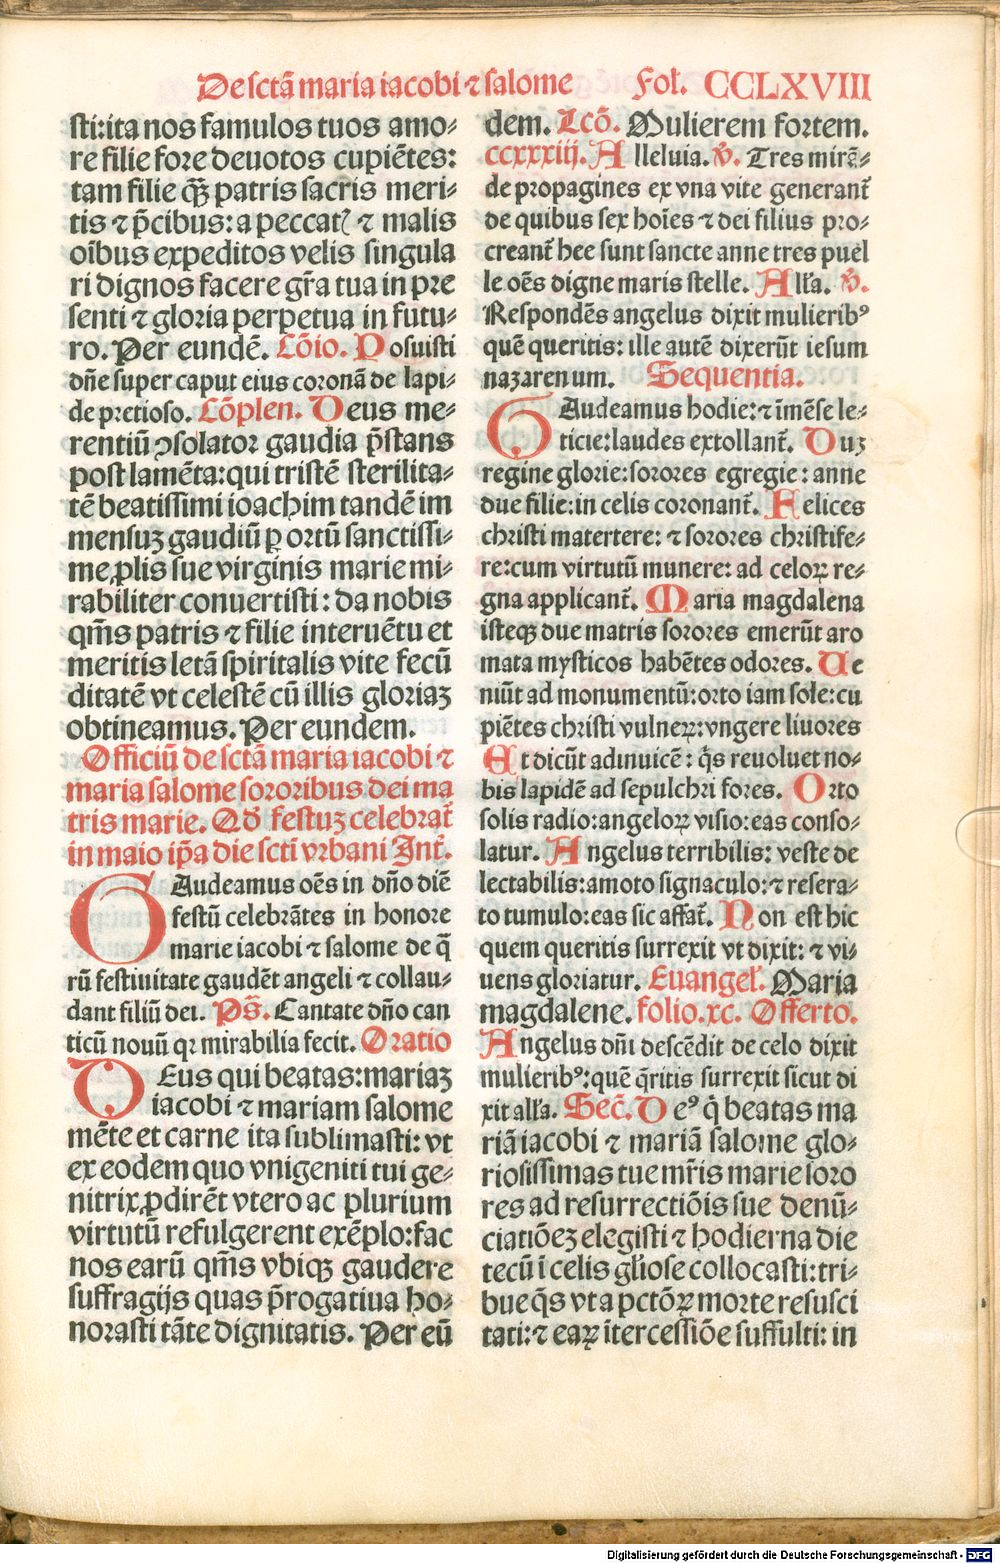 De sctā maria iacobi ⁊ salome Fol. CCLXVIII
sti:ita nos famulos tuos amo⸗
re filie fore deuotos cupiētes:
tam filie qꝫ̄ patris sacris meri⸗
tis ⁊ p̄cibus: a peccatꝭ ⁊ malis
oībus expeditos velis singula
ri dignos facere gr̄a tua in pre
senti ⁊ gloria perpetua in futu⸗
ro. Per eundē. Cōio. Posuisti
dn̄e super caput eius coronā de lapi⸗
de pretioso. Cōplen. Deus me⸗
rentiū ↄsolator gaudia p̄stans
post lamēta: qui tristē sterilita⸗
tē beatissimi ioachim tandē im
mensuꝫ gaudiū ꝑ ortū sanctissi⸗
me ꝓlis sue virginis marie mi⸗
rabiliter conuertisti: da nobis
qm̄s patris ⁊ filie interuētu et
meritis letā spiritalis vite fecū
ditatē vt celestē cū illis gloriaꝫ
obtineamus. Per eundem.
Officiū de sctā maria iacobi ⁊
maria salome sororibus dei ma
tris marie. Qd̄ festuꝫ celebrat̄
in maio ip̄a die scti vrbani Int̄.
GAudeamus oēs in dn̄o diē
festū celebrātes in honore
marie iacobi ⁊ salome de q̄
rū festiuitate gaudēt angeli ⁊ collau⸗
dant filiū dei. Ps̄. Cantate dn̄o can
ticū nouū qꝛ mirabilia fecit. Oratio
DEus qui beatas: mariaꝫ
iacobi ⁊ mariam salome
mēte et carne ita sublimasti: vt
ex eodem quo vnigeniti tui ge⸗
nitrix ꝓdirēt vtero ac plurium
virtutū refulgerent exēplo: fac
nos earū qm̄s vbiqꝫ gaudere
suffragijs quas p̄rogatiua ho⸗
norasti tāte dignitatis. Per eū
dem. Lcō. Mulierem fortem.
ccxxxiij. Alleluia. v̄. Tres mirē⸗
de propagines ex vna vite generant̄
de quibus sex hoīes ⁊ dei filius pro⸗
creant̄ hee sunt sancte anne tres puel
le oēs digne maris stelle. All̄a. v̄.
Respondēs angelus dixit mulieribꝰ
quē queritis: ille autē dixerūt iesum
nazarenum. Sequentia.
GAudeamus hodie: ⁊ īmēse le⸗
ticie: laudes extollant̄. Duꝫ
regine glorie: sorores egregie: anne
due filie: in celis coronant̄. Felices
christi matertere: ⁊ sorores christife⸗
re: cum virtutū munere: ad celoꝝ re⸗
gna applicant̄. Maria magdalena
isteqꝫ due matris sorores emerūt aro
mata mysticos habētes odores. Ue
niūt ad monumentū: orto iam sole: cu
piētes christi vulneꝝ: vngere liuores
Et dicūt adinuicē: qͥs reuoluet no⸗
bis lapidē ad sepulchri fores. Orto
solis radio: angeloꝝ visio: eas conso⸗
latur. Angelus terribilis: veste de
lectabilis: amoto signaculo: ⁊ resera⸗
to tumulo: eas sic affat̄. Non est hic
quem queritis surrexit vt dixit: ⁊ vi⸗
uens gloriatur. Euangel̄. Maria
magdalene. folio. xc. Offerto.
Angelus dn̄i descēdit de celo dixit
mulieribꝰ: quē q̄ritis surrexit sicut di
xit all̄a. Sec̄. Deꝰ qͥ beatas ma
riā iacobi ⁊ mariā salome glo⸗
riosissimas tue mr̄is marie soro
res ad resurrectiōis sue denū⸗
ciatiōeꝫ elegisti ⁊ hodierna die
tecū ī celis gl̄iose collocasti: tri⸗
bue qs̄ vt a pctōꝝ morte resusci
tati: ⁊ eaꝝ ītercessiōe suffulti: in
Digitalisierung gefördert durch die Deutsche Forschungsgemeinschaft - DFG